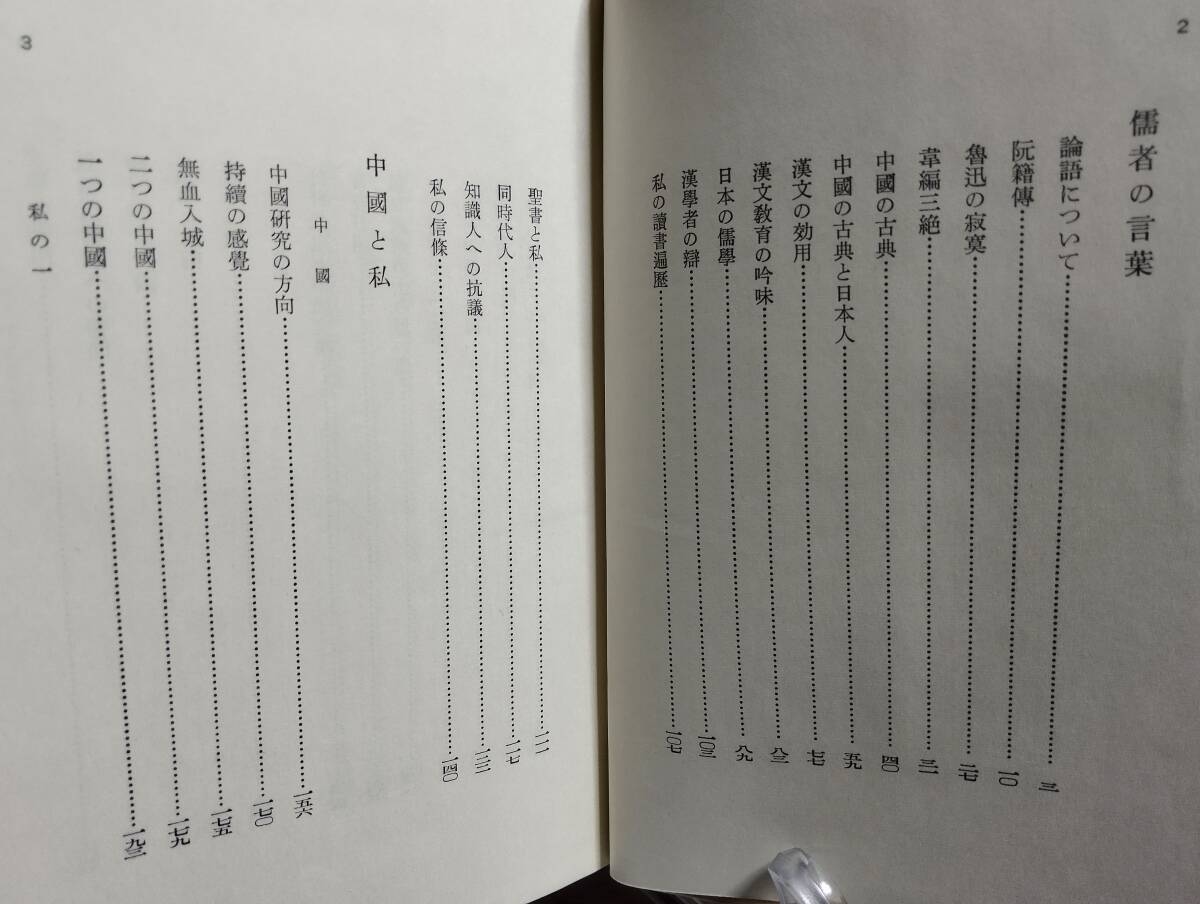 2
儒者の言葉
論語について……三
阮籍傳……一〇
魯迅の寂寞……二七
韋編三絶……三一
中國の古典……四〇
中國の古典と日本人……五九
漢文の効用……七七
漢文敎育の吟味……八三
日本の儒學……八九
漢學者の辯……一〇三
私の讀書遍歷……一〇七
聖書と私……一一一
同時代人……一二七
知識人への抗議……一三三
私の信條……一四〇
中國と私
中國
中國硏究の方向……一五六
持續の感覺……一七〇
無血入城……一七五
二つの中國……一七九
一つの中國……一九三
私の一
3